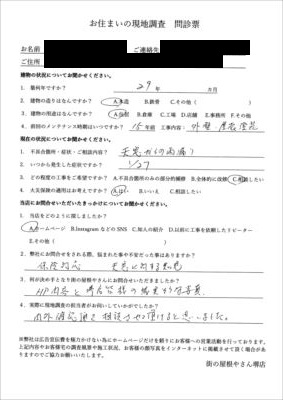 お住まいの現地調査 問診票
お名前 ご連絡先
ご住所
建物の状況についてお聞かせください。
1. 築何年ですか？ 29 年 ヵ月
2. 建物の造りはなんですか？ A.木造 B.鉄骨 C.その他（ ）
3. 建物の用途はなんですか？ A.住居 B.倉庫 C.工場 D.店舗 E.事務所 F.その他
4. 前回のメンテナンス時期はいつですか？ 15年前 工事内容： 外壁 屋根塗装
現在の状況についてお聞かせください。
1. 不具合箇所・症状・ご相談内容 天窓からの雨漏り
2. いつから発生した症状ですか？ 1/27
3. どの程度の工事をご希望ですか？ A.不具合箇所のみの部分的補修 B.全体的に改修 C.相談したい
4. 火災保険の適用はお考えですか？ A.はい B.いいえ C.相談したい
当店にお問合せいただいたきっかけについてお聞かせください。
1. 当店をどのように探しましたか？
A.ホームページ B.InstagramなどのSNS C.知人の紹介 D.以前に工事を依頼したリピーター
E.その他（ ）
2. 弊社にお問合せをされる際、悩まれた事や不安だった事はありますか？
保険対応 天窓に対する知見
3. 何が決め手となり街の屋根やさんにお問合せいただきましたか？
HP内容と
4. 実際に現地調査の担当者がお伺いしていかがでしたか？
内外
※弊社は広告宣伝費を極力かけない為にホームページだけを頼りにお客様への営業活動を行っております。
上記内容やお客様宅の調査風景や施工状況、お客様の顔写真をインターネットに掲載させて頂く場合が
ありますのでご協力お願いいたします。
街の屋根やさん堺店